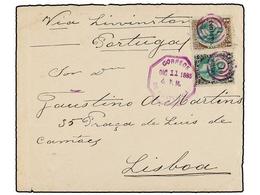 Via Livinston
Portugal
Sor Dn
Faustino A. Martins
35 Praça de Luis de
Camões
Lisboa
CORREOS
DIC 11 1895
4 P.M.